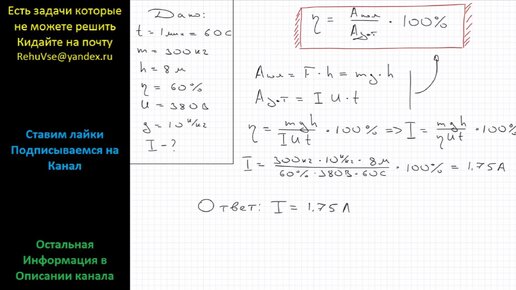 Есть задачи которые
не можете решить
Кидайте на почту
RehuVse@yandex.ru
Ставим лайки
Подписываемся на
Канал
Остальная
Информация в
Описании канала
Дано:
t = 1 мин = 60 с
m = 300 кг
h = 8 м
η = 60%
U = 380 В
g = 10 н/кг
I - ?
η = Aпол / Aз.т · 100%
Aпол = F · h = mg · h
Aэ.т = I U · t
η = mgh / IUt · 100% => I = mgh / ηUt · 100%
I = 300кг · 10 н/кг · 8 м / 60% · 380В · 60С · 100% = 1,75 А
Ответ: I = 1,75 А